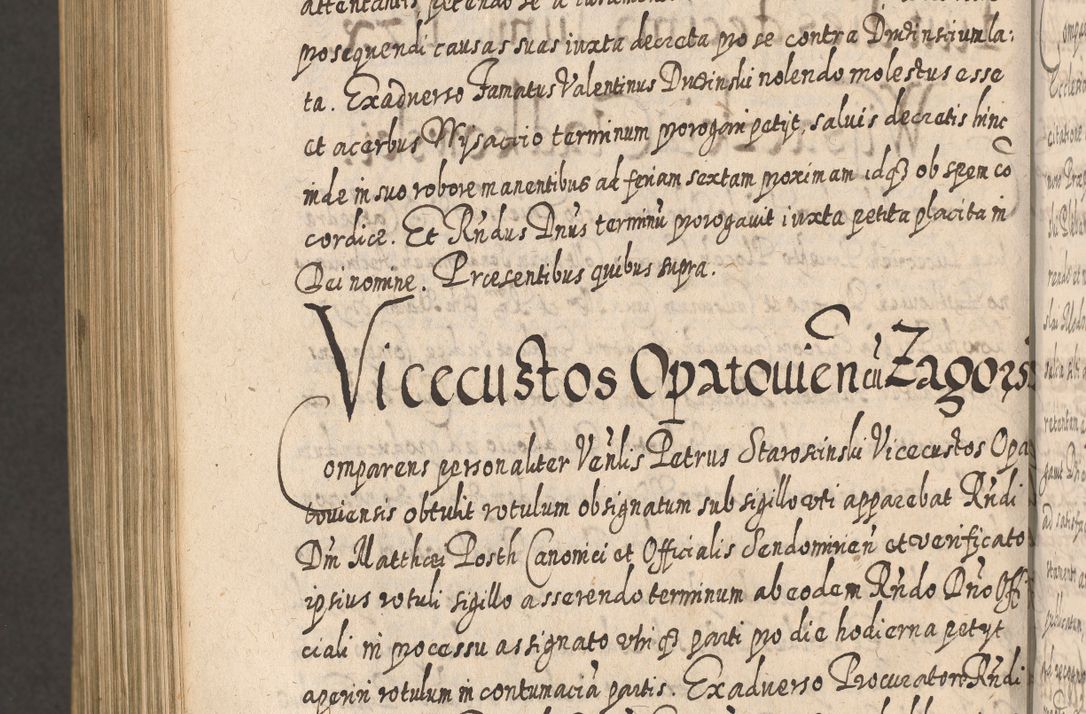 prosequendi causas suas iuxta decreta pro se contra Druzinscium la:
ta. Exaduerso Famatus Valentinus Druzinski nolendo molestus esse
et acerbus Wysoccio terminum prorogari petyt, saluis decretis hinc
inde in suo robore manentibus ad feriam sextam proximam idq3 ob spem co
cordiæ. Et Rńdus Dńus terminū prorogauit iuxta petita placita in
Dei nomine. Præsentibus quibus supra.
Vicecustos Opatouien cū Zagors
Comparens personaliter Veńlis Petrus Staroscinski Vicecustos Opa
touiensis obtulit rotulum obsignatum sub sigillo uti apparebat Rńdi
Dńi Matthæi Posth Canonici et Officialis Sendomirień et verificato
ipsius rotuli sigillo asserendo terminum ab eodem Rńdo Dńo Offi
ciali in processu assignato utriq3 parti pro die hodierna petyt
aperiri rotulum in contumaciā partis. Exaduerso Procurator Rńdi